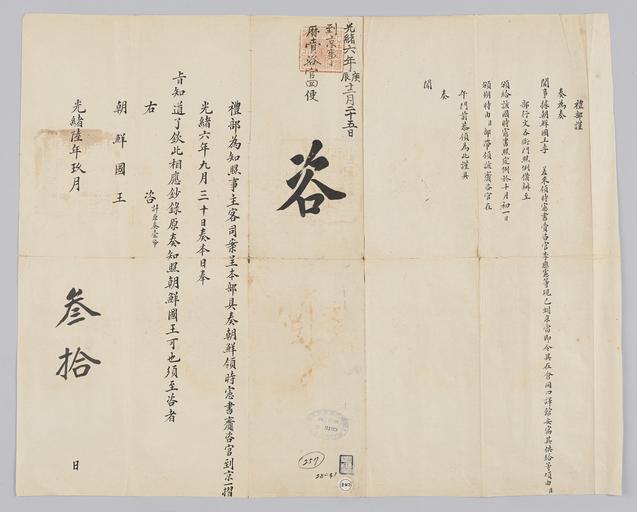 禮部謹
奏為奏
聞事據朝鮮國王李 差來領時憲書賫咨官李應憲等現已到京當即令其在會同四譯館安寓其供給等項由臣
部行文各衙門照例備辦至
頒給該國時憲書照定例於十月初一日
頒朔時由臣部帶領該賫咨官在
午門前恭領為此謹具
奏
聞
光緒六年庚辰十二月二十五日
到京
曆賫咨官回便
咨
禮部為知照事主客司案呈本部具奏朝鮮領時憲書賫咨官到京一摺
光緒六年九月三十日奏本日奉
旨知道了欽此相應鈔錄原奏知照朝鮮國王可也須至咨者
右 咨 計原奏壹帋
朝鮮國王
光緒陸年玖月 叁拾 日
257